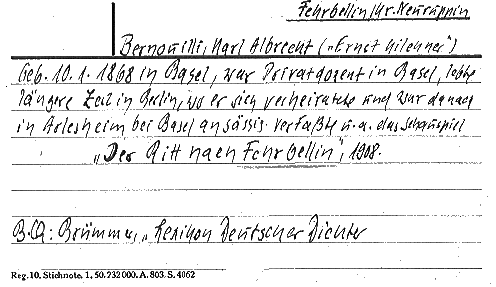 Fehrbellin/Kr. Neuruppin
Bernouilli, Karl Albrecht („Ernst Kilchner")
Geb. 10.1.1868 in Basel, war Privatdozent in Basel, lebte
längere Zeit in Berlin, wo er sich verheiratete und war danach
in Arlesheim bei Basel ansässig. Verfaßte u.a. das Schauspiel
„Der Ritt nach Fehrbellin", 1908.
B.Q.: Brümmer, „Lexikon Deutscher Dichter
Reg. 10. Stichnote. 1, 50. 232 000. A. 803. S. 4062